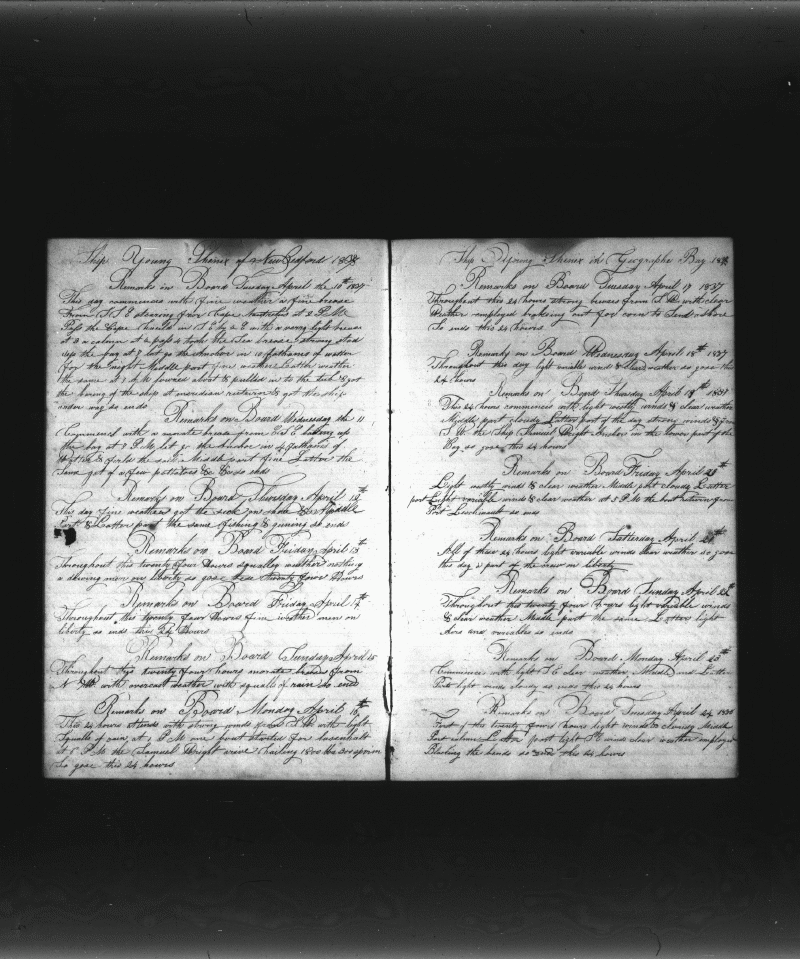 Ship Young Phenix of New Bedford 183
Remarks in Board Tuesday April the 10th 1837
This day commences with fine weather a fine breese
From S S E stearing for Cape
Pass the Cape
at 3 a calum at 4 past 4 took the Sea breese & strong stod
up the bay at 7 let go the anchor in 10 fathams of water
for the night Middle part fine weather Latter weather
the same at 7 A M
the boving of the ship at meredian return & got the ship
under way so ends
Remarks on Board Wednesday the 11
Commenced with a morate breese from E S E
the bay at 7 P M let go the anchor in 4 fathoms of
Middle part fine Latter the
Same got of a few potatoes &c &c so ends
Remarks on Board Thursday April 12th
This day fine weather got the sick on shore & Middle
Part & Latter part the same fishing & guning so ends
Remarks on Board Friday April 13th
Throughout this twenty four hours squaley weather nothing
a dewing men on liberty so goes these twenty four hours
Remarks on Board Friday April 14
Throughout this twenty four hours fine weather men on
liberty so ends this 24 hours
Remarks on Board Sunday April 15
Throughout this twenty four hours morate breeses from
N W with overcast weather with squalls of rain so ends
Remarks on Board Monday April 16th
This 24 hours atends with strong winds from S W with light
Squalls of rain at 1 P M one boat started for
at 5 P M the Samuel Wright arive haveing 1800 bbs 300 sperm
So goes this 24 hours
Ship Young Phenix in Geographe Bay 183
Remarks on Board Tuesday April 17 1837
Throughout this 24 hours strong breeses from S W with clear
Weather employed braking out for corn to Send ashore
So ends this 24 hours
Remarks on Board Wednesday April 18th 1837
Throughout this day light varable winds & clear weather so goes this
24 hours
Remarks on Board Thursday April 19th 1837
This 24 hours commences with light westly winds & clear weather
Middle part cloudy Latter part of the day strong winds from
S W the Ship Samuel Wright Anchor in the lower part of the
Bay so goes this 24 hours
Remarks on Board Friday April 20th
Light westly winds & clear weather Middle part cloudy Latter
part Light variable winds & clear weather at 5 P M the boat return from
Port Leschanat so ends
Remarks on Board Satterday April 21th
All of these 24 hours light varable winds clear weather so goes
this day part of the crew on liberty
Remarks on Board Sunday April 22
Throughout this twenty four hours light variable winds
& clear weather Middle part the same Latter light
Airs and varables so ends
Remarks on Board Monday April 23th
Commences with light S E clear weather Middle and Latter
Part light winds cloudy so ends this 24 hours
Remarks on Board Tuesday April 24 183
First of the twenty fours hours light winds & cloudy Middle
Part calum Latter part light S E winds clear weather employed
Blacking the bends so end this 24 hours